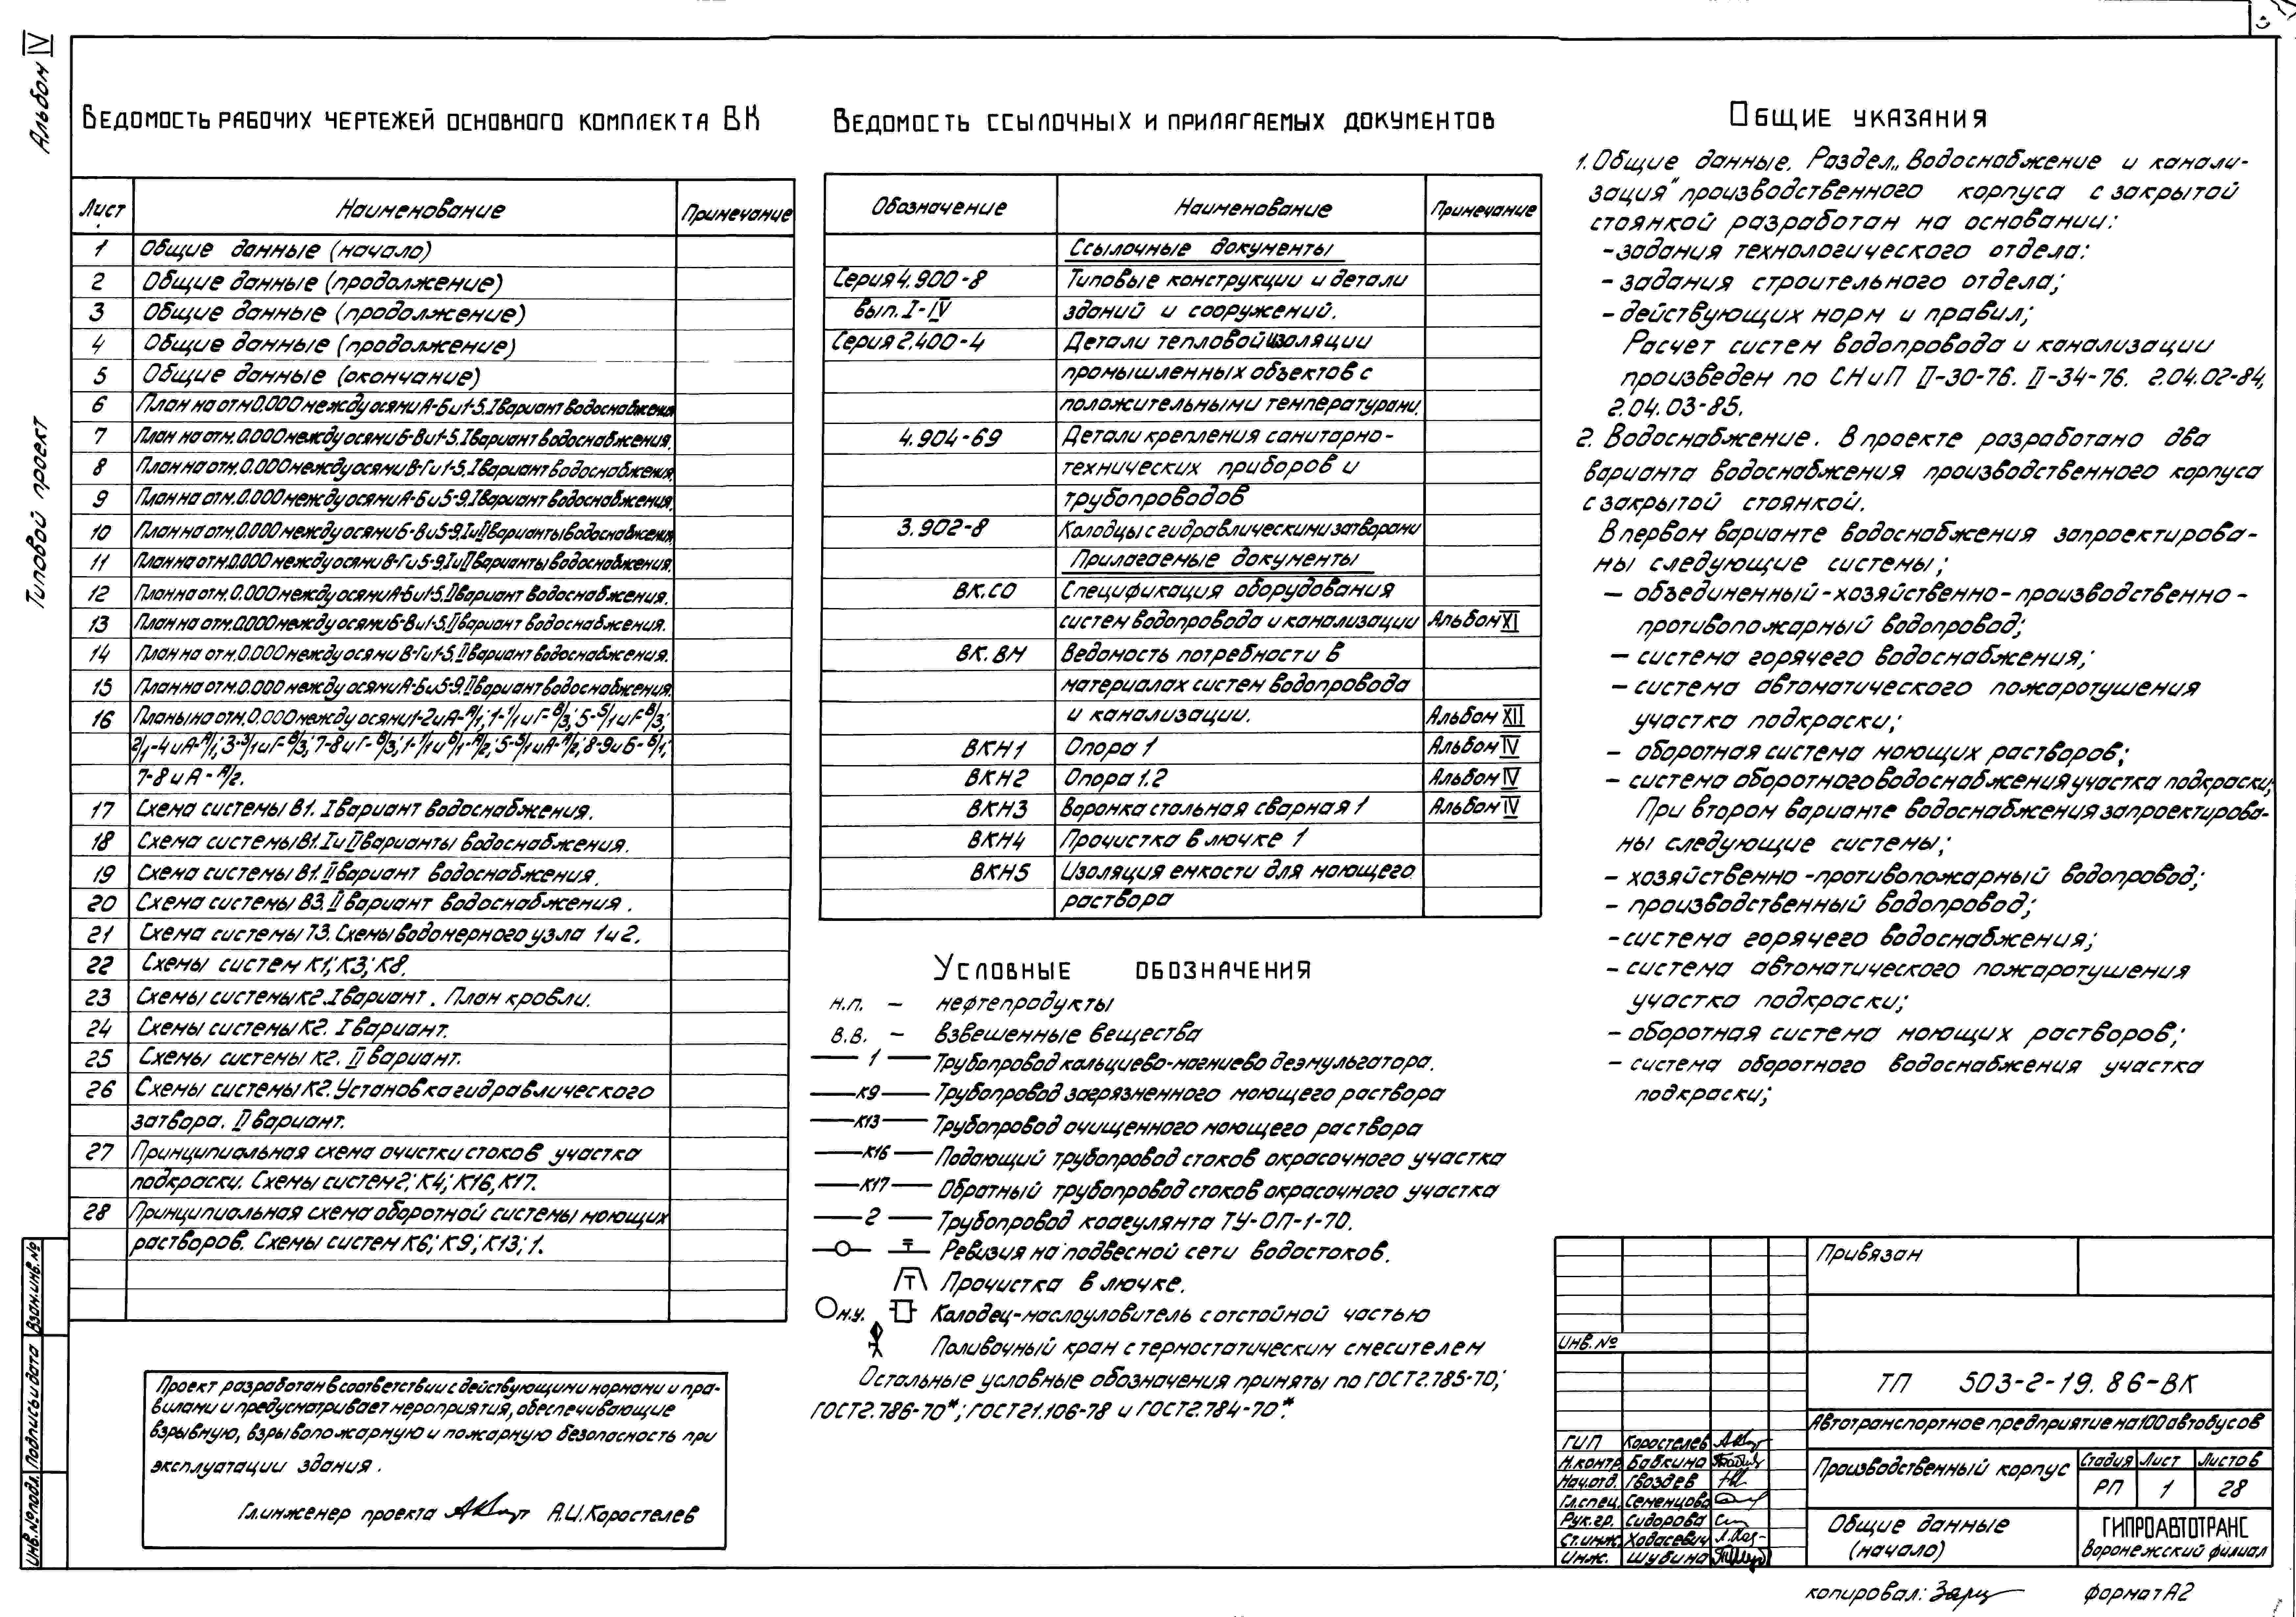 Альбом IV
Типовой проект
ВЕДОМОСТЬ РАБОЧИХ ЧЕРТЕЖЕЙ ОСНОВНОГО КОМПЛЕКТА ВК
Лист Наименование Примечание
1 Общие данные (начало)
2 Общие данные (продолжение)
3 Общие данные (продолжение)
4 Общие данные (продолжение)
5 Общие данные (окончание)
6 План на отм 0.000 между осями А-Б и 1-5. I вариант водоснабжения
7 План на отм. 0.000 между осями Б-В и 1-5. I вариант водоснабжения.
8 План на отм. 0.000 между осями В-Г и 1-5. I вариант водоснабжения.
9 План на отм. 0.000 между осями А-Б и 5-9. I вариант водоснабжения.
10 План на отм. 0.000 между осями Б-В и 5-9. I и II варианты водоснабжения
11 План на отм. 0.000 между осями В-Г и 5-9. I и II варианты водоснабжения.
12 План на отм. 0.000 между осями А-Б и 1-5. II вариант водоснабжения.
13 План на отм. 0.000 между осями Б-В и 1-5. II вариант водоснабжения.
14 План на отм. 0.000 между осями В-Г и 1-5. II вариант водоснабжения.
15 План на отм. 0.000 между осями А-Б и 5-9. II вариант водоснабжения.
16 Планы на отм. 0.000 между осями 1-2 и А-А/1; 1-1/1 и Г-В/3; 5-5/1 и Г-В/3;
2/1-4 и А-А/1; 3-3/1 и Г-В/3; 7-8 и Г-В/3; 1-1/1 и Б/1-А/2; 5-5/1 и А-А/2; 8-9 и Б-Б/1;
7-8 и А-А/2.
17 Схема системы В1. I вариант водоснабжения.
18 Схема системы В1. I и II варианты водоснабжения.
19 Схема системы В1. II вариант водоснабжения.
20 Схема системы В3. II вариант водоснабжения.
21 Схема системы Т3. Схемы водомерного узла 1 и 2.
22 Схемы систем К1; К3; К8.
23 Схемы системы К2. I вариант. План кровли.
24 Схемы системы К2. I вариант.
25 Схемы системы К2. II вариант.
26 Схемы системы К2. Установка гидравлического
затвора. II вариант.
27 Принципиальная схема очистки стоков участка
подкраски. Схемы систем 2; К4; К16, К17.
28 Принципиальная схема оборотной системы моющих
растворов. Схемы систем К6; К9; К13; 1.
Проект разработан в соответствии с действующими нормами и пра-
вилами и предусматривает мероприятия, обеспечивающие
взрывную, взрывопожарную и пожарную безопасность при
эксплуатации здания.
Гл. инженер проекта А.И. Коростелев
ВЕДОМОСТЬ ССЫЛОЧНЫХ И ПРИЛАГАЕМЫХ ДОКУМЕНТОВ
Обозначение Наименование Примечание
Ссылочные документы
Серия 4.900-8 Типовые конструкции и детали
вып. I-IV зданий и сооружений.
Серия 2.400-4 Детали тепловой изоляции
промышленных объектов с
положительными температурами.
4.904-69 Детали крепления санитарно-
технических приборов и
трубопроводов
3.902-8 Колодцы с гидравлическими затворами
Прилагаемые документы
ВК.СО Спецификация оборудования
систем водопровода и канализации Альбом XI
ВК.ВМ Ведомость потребности в
материалах систем водопровода
и канализации. Альбом XII
ВКН1 Опора 1 Альбом IV
ВКН2 Опора 1.2 Альбом IV
ВКН3 Воронка стальная сварная 1 Альбом IV
ВКН4 Прочистка в лючке 1
ВКН5 Изоляция емкости для моющего
раствора
УСЛОВНЫЕ ОБОЗНАЧЕНИЯ
н.п. – нефтепродукты
в.в. – взвешенные вещества
1 Трубопровод кальциево-магниево деэмульгатора.
К9 Трубопровод загрязненного моющего раствора
К13 Трубопровод очищенного моющего раствора
К16 Подающий трубопровод стоков окрасочного участка
К17 Обратный трубопровод стоков окрасочного участка
2 Трубопровод коагулянта ТУ-ОП-1-70.
Ревизия на подвесной сети водостоков.
Прочистка в лючке.
м.у. Колодец-маслоуловитель с отстойной частью
Поливочный кран с термостатическим смесителем
Остальные условные обозначения приняты по ГОСТ 2.785-70;
ГОСТ 2.786-70*; ГОСТ 21.106-78 и ГОСТ 2.784-70*.
ОБЩИЕ УКАЗАНИЯ
1. Общие данные. Раздел „Водоснабжение и канали-
зация" производственного корпуса с закрытой
стоянкой разработан на основании:
- задания технологического отдела:
- задания строительного отдела;
- действующих норм и правил;
Расчет систем водопровода и канализации
произведен по СНиП II-30-76. II-34-76. 2.04.02-84,
2.04.03-85.
2. Водоснабжение. В проекте разработано два
варианта водоснабжения производственного корпуса
с закрытой стоянкой.
В первом варианте водоснабжения запроектирова-
ны следующие системы;
- объединенный-хозяйственно-производственно-
противопожарный водопровод;
- система горячего водоснабжения;
- система автоматического пожаротушения
участка подкраски;
- оборотная система моющих растворов;
- система оборотного водоснабжения участка подкраски;
При втором варианте водоснабжения запроектирова-
ны следующие системы;
- хозяйственно-противопожарный водопровод;
- производственный водопровод;
- система горячего водоснабжения;
- система автоматического пожаротушения
участка подкраски;
- оборотная система моющих растворов;
- система оборотного водоснабжения участка
подкраски;
Привязан
Инв. №
ТП 503-2-19.86-ВК
Автотранспортное предприятие на 100 автобусов
ГИП Коростелев
Н.контр. Бабкина
Нач.отд. Гвоздев
Гл.спец. Семенцова
Рук.гр. Сидорова
Ст.инж. Ходасевич
Инж. Шубина
Производственный корпус
Стадия Лист Листов
РП 1 28
Общие данные
(начало)
ГИПРОАВТОТРАНС
Воронежский филиал
копировал: формат А2
Инв. № подл. Подпись и дата Взам. инв. №